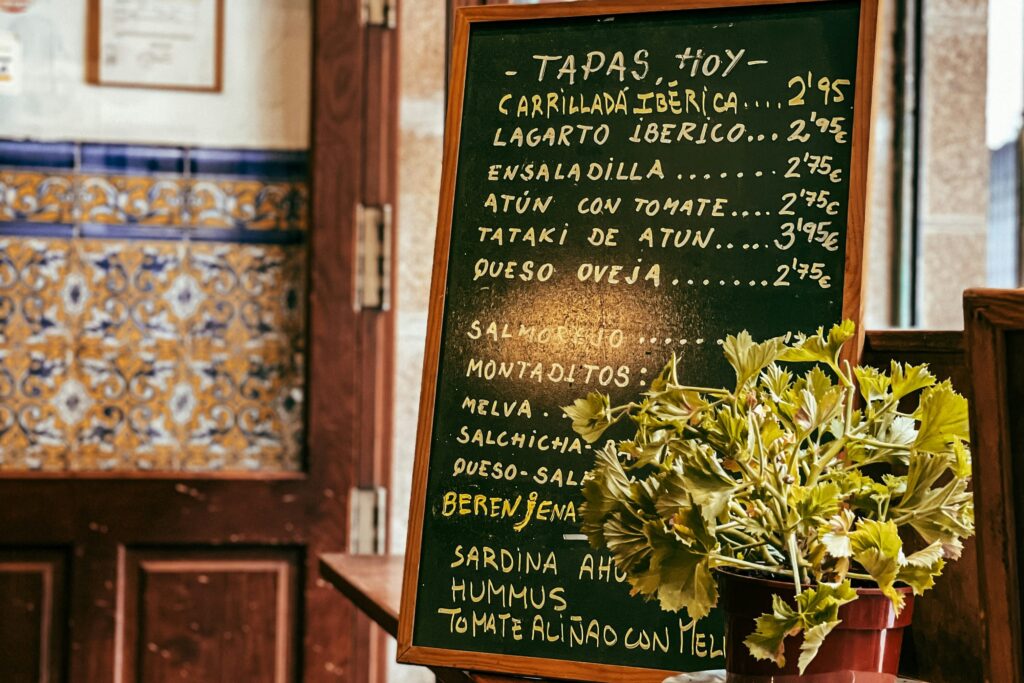 - TAPAS, HOY -
CARRILLADA IBÉRICA.... 2'95
LAGARTO IBERICO... 2'95€
ENSALADILLA ....... 2'75€
ATÚN CON TOMATE.... 2'75€
TATAKI DE ATUN..... 3'95€
QUESO OVEJA ....... 2'75€
SALMOREJO ......
MONTADITOS:
MELVA .
SALCHICHA-
QUESO-
BERENJENA
SARDINA
HUMMUS
TOMATE ALIÑAO CON